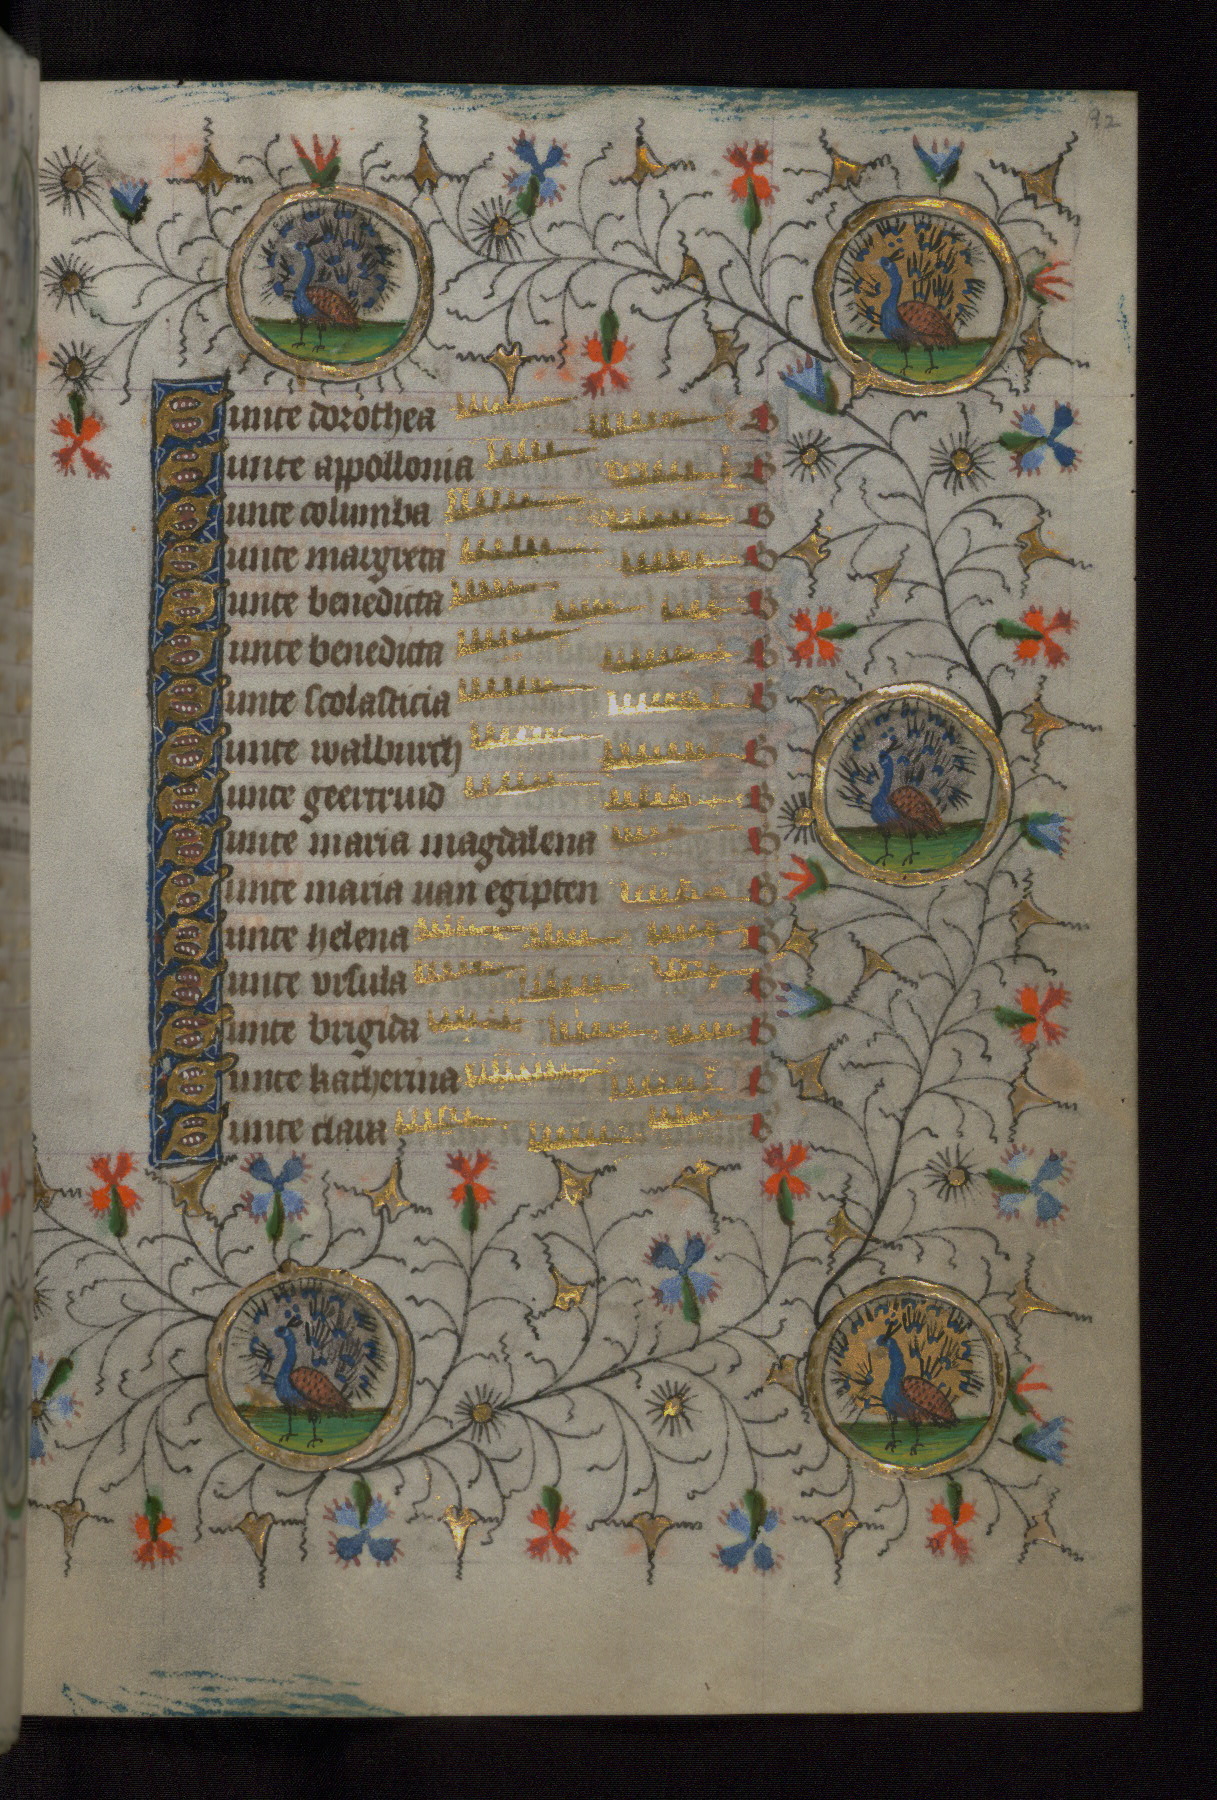 92
Sunte dorothea B
Sunte appollonia B
Sunte columba B
Sunte margreta B
Sunte benedicta B
Sunte benedicta B
Sunte scolasticia B
Sunte walburch B
Sunte geertruid B
Sunte maria magdalena B
Sunte maria uan egipten B
Sunte helena B
Sunte vrsula B
Sunte brigida B
Sunte katherina B
Sunte clara B